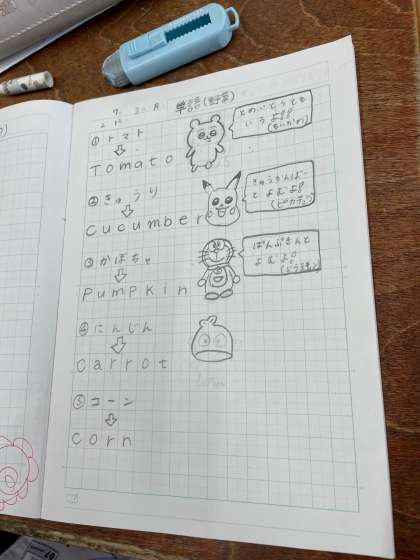 単語(野菜)
①トマト
Tomato
とめいとうとも
いうよ!!
②きゅうり
Cucumber
きゅうかんばー
とよむよ!
(ピカチュウ)
③かぼちゃ
Pumpkin
ぱんぷきんと
よむよ!
④にんじん
Carrot
⑤コーン
Corn